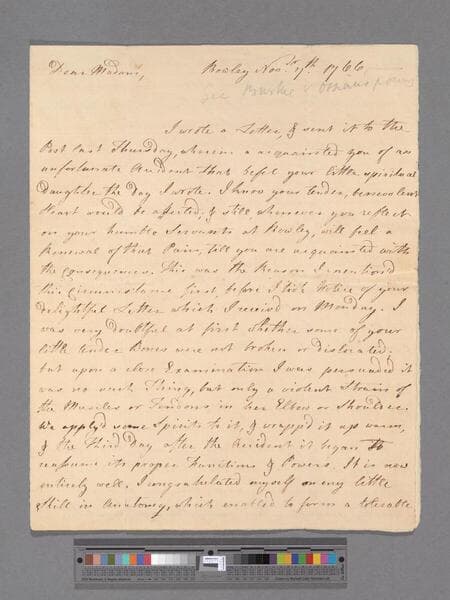 Dear Madam, Rowley Novr. 17th. 1766
see Burke's
I wrote a Letter, & sent it to the
Post last Thursday, wherein I acquainted you of an
unfortunate Accident that befel your little spiritual
Daughter the Day I wrote. I know your tender, benevolent
Heart would be affected, & still whenever you reflect
on your humble Servants at Rowley, will feel a
Renewal of that Pain, till you are acquainted with
the Consequences. This was the Reason I mentiond
this Circumstance first, before I took Notice of your
delightful Letter which I receivd on Monday. I
was very doubtful at first whether some of your
little tender Bones were not broken or dislocated:
but upon a close Examination I was persuaded it
was no such Thing, but only a violent Strain of
the Muscles or Tendons in her Elbow or Shoulder.
We apply'd some Spirits to it, & wrapp'd it up warm,
& the third Day after the Accident it began to
reassume its proper Functions & Powers. It is now
entirely well. I congratulated myself on my little
Skill in Anatomy, which enabled to form a tolerable